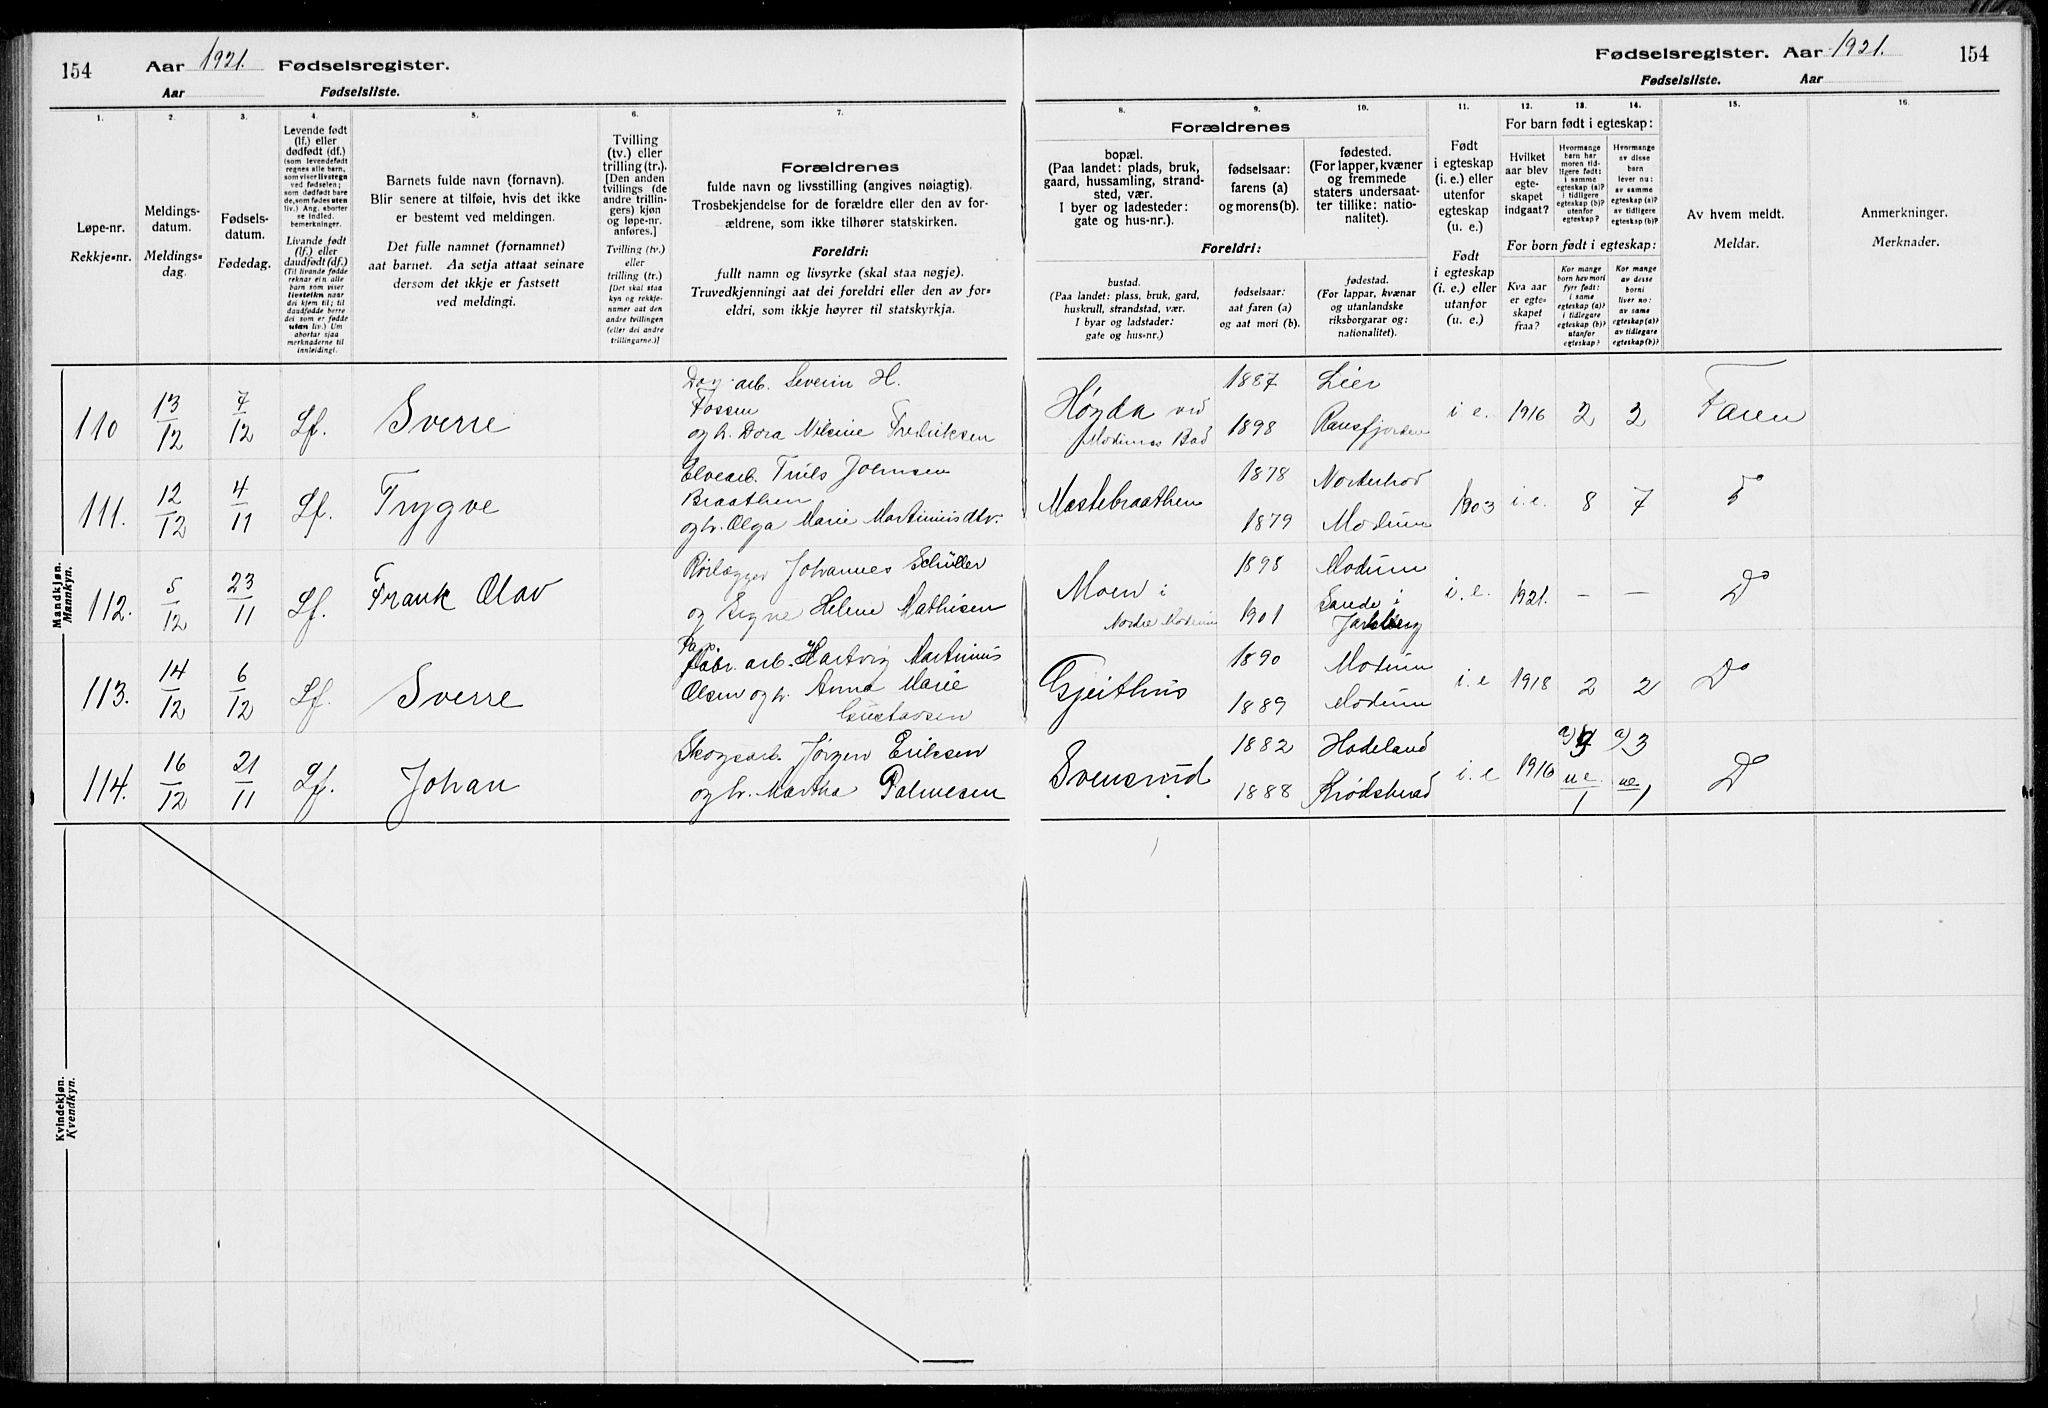 154 Aar 1921. Fødselsregister.
Aar Fødselsliste.
Fødselsregister. Aar 1921. 154
Fødselsliste. Aar
1. 2. 3. 4. 5. 6. 7.
Løpe-nr.
Rekkje-nr.
Meldings-
datum.
Meldings-
dag.
Fødsels-
datum.
Fødedag.
Levende født
(lf.) eller
dødfødt (df.)
(som levendefødt
regnes alle barn,
som viser livstegn
ved fødselen;
som dødfødt bare
de, som fødes uten
liv.) Ang. aborter
se indled.
bemerkninger.
Livande født
(lf.) eller
daudfødt (df.)
(Til livande fødde
reknar ein alle
barn som viser
livsteikn naar
dei kjem til; til
daudfødde berre
dei som er fødde
utan liv.) Um
abortar sjaa
merknaderne til
innleidingi.
Barnets fulde navn (fornavn).
Blir senere at tilføie, hvis det ikke
er bestemt ved meldingen.
Det fulle namnet (fornamnet)
aat barnet. Aa setja attaat seinare
dersom det ikkje er fastsett
ved meldingi.
Tvilling
(tv.) eller
trilling (tr.).
[Den anden
tvillings (de
andre trillin-
gers) kjøn
og løpe-nr.
anføres.]
Tvilling (tv.)
eller
trilling (tr.)
[Det skal staa
kyn og rekkje-
numer aat den
andre tvillingen
(eller dei andre
trillingarne.)]
Forældrenes
fulde navn og livsstilling (angives nøiagtig).
Trosbekjendelse for de forældre eller den av for-
ældrene, som ikke tilhører statskirken.
Foreldri:
fullt namn og livsyrke (skal staa nøgje).
Truvedkjenningi aat dei foreldri eller den av for-
eldri, som ikkje høyrer til statskyrkja.
8. 9. 10. 11. 12. 13. 14. 15. 16.
Forældrenes
bopæl.
(Paa landet: plads, bruk,
gaard, hussamling, strand-
sted, vær.
I byer og ladesteder:
gate og hus-nr.).
fødselsaar:
farens (a)
og morens (b).
fødested.
(For lapper, kvæner
og fremmede
staters undersaat-
ter tillike: natio-
nalitet).
Foreldri:
bustad.
(Paa landet: plass, bruk, gard,
huskrull, strandstad, vær.
I byar og ladstader:
gate og hus-nr.)
fødselsaar:
aat faren (a)
og aat mori (b).
fødestad.
(For lappar, kvænar
og utanlandske
riksborgarar og:
nationalitet).
Født
i egteskap
(i. e.) eller
utenfor
egteskap
(u. e.)
Født
i egteskap
(i. e.) eller
utanfor
(u. e.)
For barn født i egteskap:
Hvilket
aar blev
egte-
skapet
indgaat?
Hvormange
barn har
moren tid-
ligere født:
i samme
egteskap (a)?
i tidligere
egteskap (b)?
utenfor
egteskap?
Hvormange
av disse
barn
lever nu:
av samme
egteskap (a)?
av tidligere
egteskap (b)?
For born født i egteskap:
Kva aar
er egte-
skapet
fraa?
Kor mange
born hev mori
fyrr født:
i same
egteskap (a)?
i tidlegare
egteskap (b)?
utanfor
egteskap?
Kor mange
av desse
borni
liver no:
av same
egteskap (a)?
av tidlegare
egteskap (b)?
Av hvem meldt.
Meldar.
Anmerkninger.
Merknader.
Mandkjøn.
Mannkyn.
110 13/12 7/12 Lf. Sverre
Dag.arb. Severin H.
Fossen
og h. Dora Nilsine Fredriksen
Hønda ved
Modums Bad
1887 Lier
1898 Ransfjorden
i e. 1916 2 2 Faren
111. 12/12 4/11 Lf. Trygve
Elvearb. Truls Johnsen
Braathen
og h. Olga Marie Martiniusdtr.
Mastebraathen
1878 Norderhov
1879 Modum
1903 i. e. 8 7
112. 5/12 23/11 Lf. Frank Olav
Rørlægger Johannes Schüller
og Signe Helene Mathisen
Moen i
Nordre Modum
1898 Modum
1901 Sande i
Jarlsberg
i. e. 1921. — — Do
113. 14/12 6/12 Lf. Sverre
Pap.
fabr. arb. Hartvig Martinius
Olsen og h. Anna Marie
Gustavsen
Gjeithus
1890 Modum
1889 Modum
i. e 1918 2 2 Do
114. 16/12 21/11 Lf. Johan
Skogsarb. Jørgen Eriksen
og h. Martha Palmesen
Svensrud
1882 Hadeland
1888 Krødsherad
i. e 1916 a) ue. 1 a) 3 ue 1 Do
Kvindekjøn.
Kvendkyn.